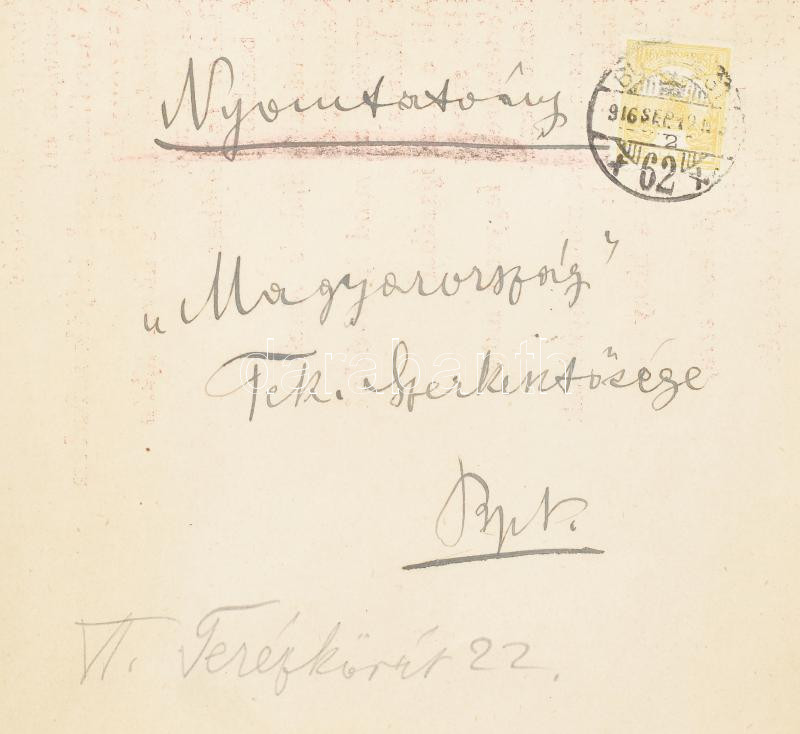 Nyomtatvány
916 SEP 12
2
* 62 *
„Magyarország”
Tek. Szerkesztősége
Bpt.
VI. Terézkörút 22.
darabanth